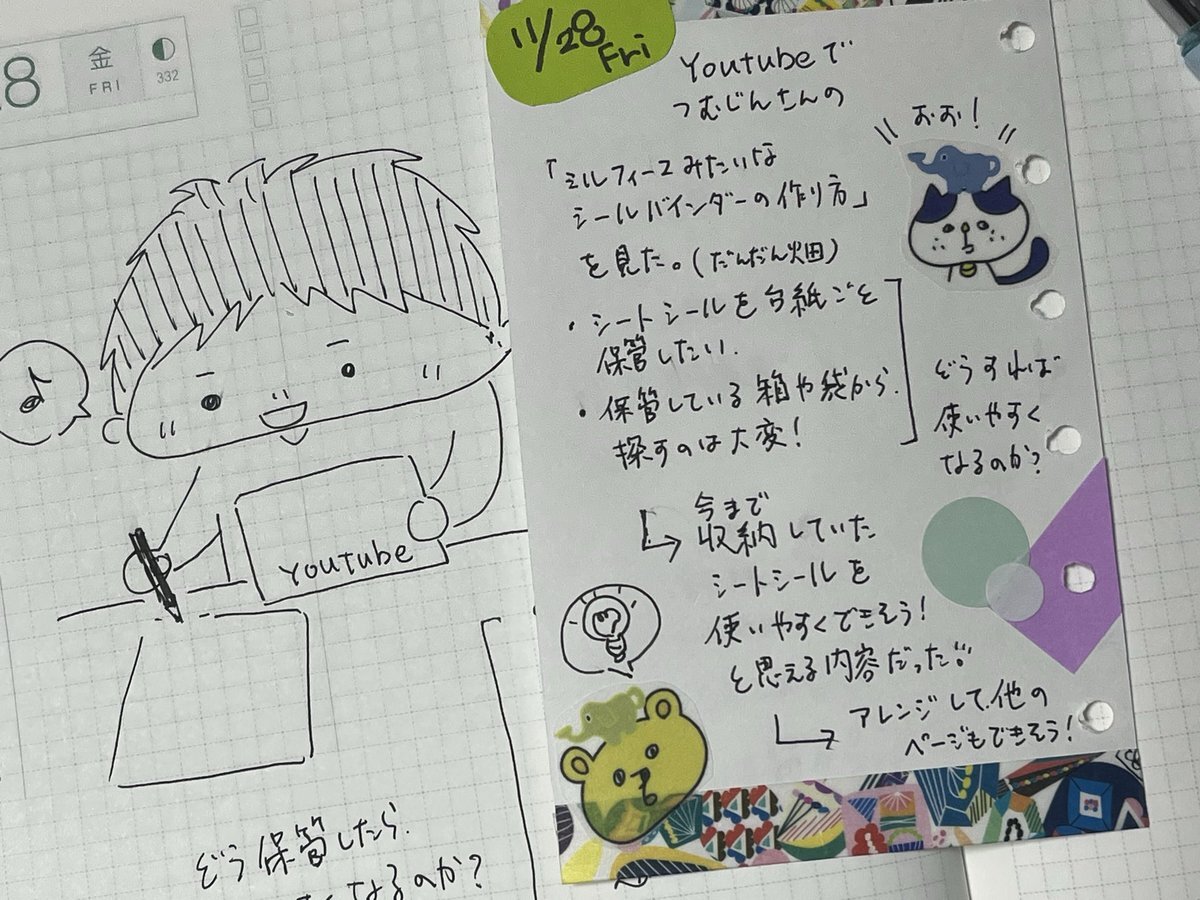 8
金
FRI
332
Youtube
どう保管したら
なるのか?
11/28
Fri
Youtubeで
つむじんさんの
「ミルフィーユみたいな
シールバインダーの作り方」
を見た。(だんだん畑)
・シートシールを台紙ごと
保管したい.
・保管している箱や袋から.
探すのは大変!
どうすれば
使いやすく
なるのか?
今まで
収納していた
シートシールを
使いやすくできそう!
と思える内容だった。
アレンジして他の
ページもできそう!
おお!